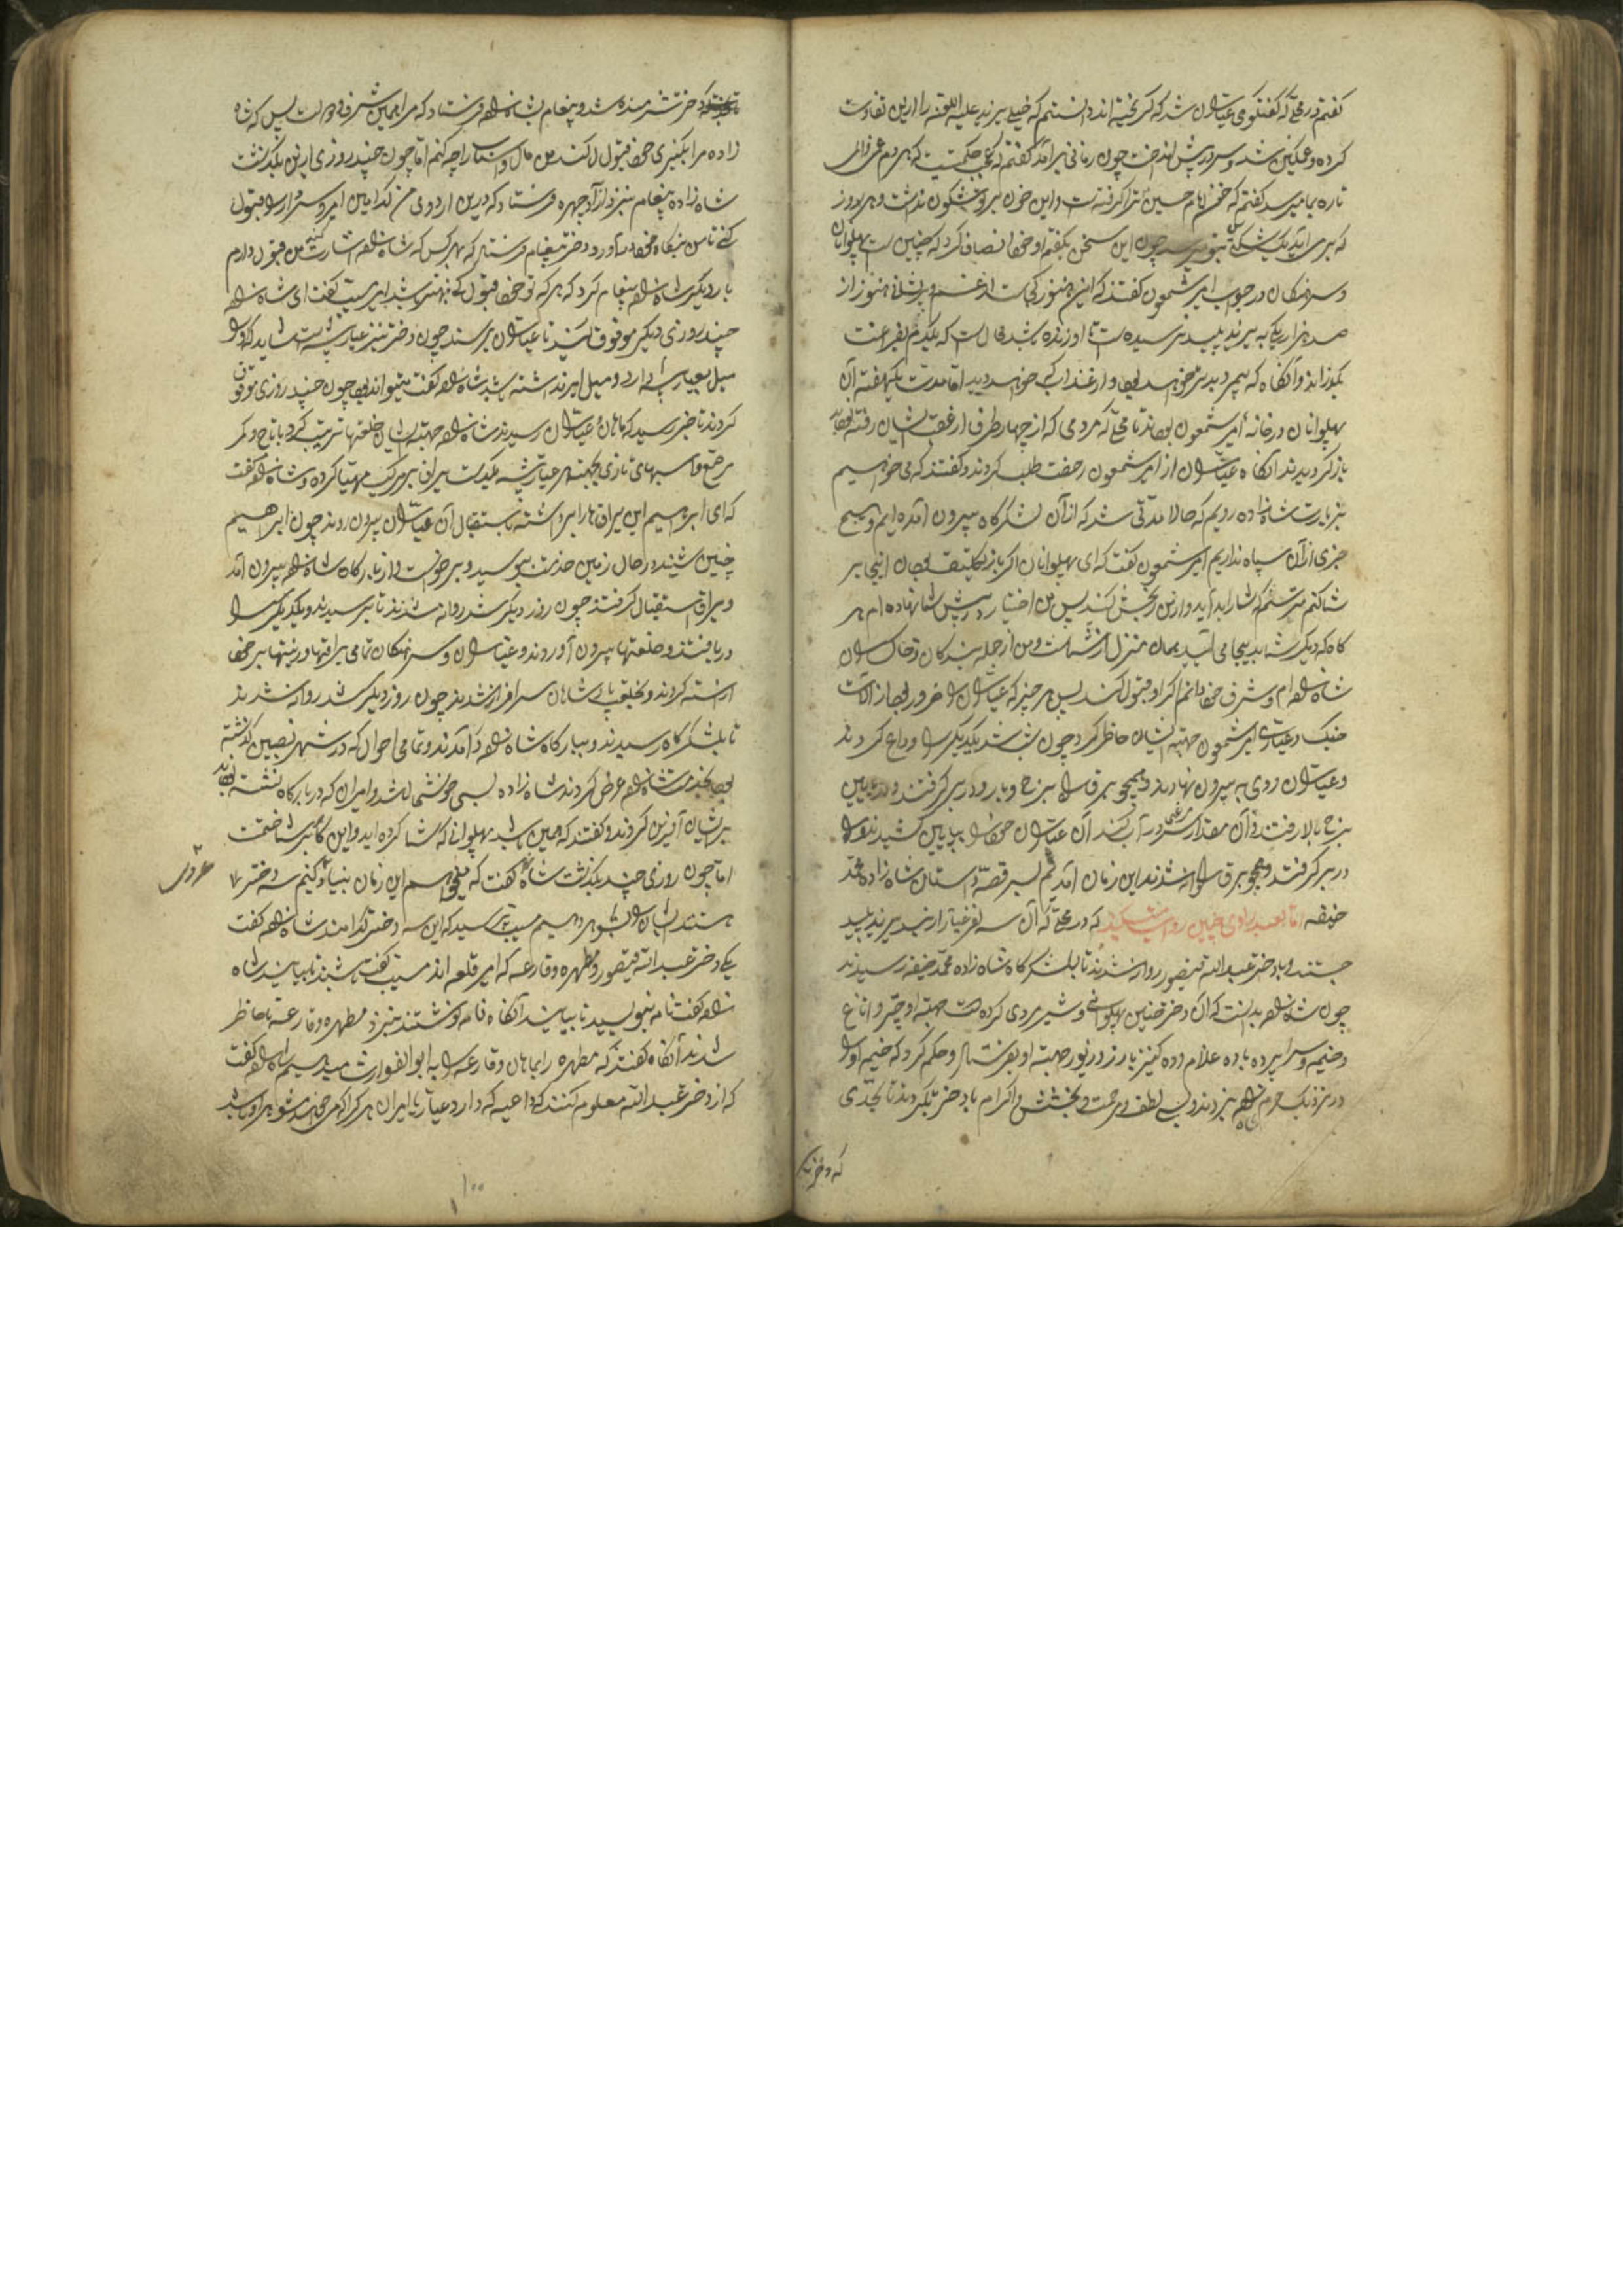 گفتم در محلی که گفتگوی عیاران شد که گریخته‌اند دانستم که خیلی یزید علیه اللعنه را ازین تفاوت
کرده و غمگین شد و سر در پیش انداخت چون زمانی برآمد گفتم که عجب حکمتیست که هر دم غمی از
تازه بما میرسد گفتم که خون امام حسین ترا گرفته است و این خون بر تو شگون نداشت و هر روز
که بر می آید یک شکستی بتو میرسد چون این سخن بگفتم او خود انصاف کرد که چنین است پهلوانان
و سرهنگان در جواب امیر شمعون گفتند که این هنوز کی است از غم و پریشانی هنوز از
صد هزار یکی به یزید پلید نرسیده است تا او زنده باشد محال است که یکدم بفراغت
بگذراند و آنگاه که بمیرد بدتر خواهد بود و از عذاب کی خواهد دید اما مدت یکهفته آن
پهلوانان در خانه امیر شمعون بودند تا محلی که مردمی که از چهار طرف از عقب ایشان رفته بودند
باز گردیدند آنگاه عیاران از امیر شمعون رخصت طلب کردند و گفتند که می خواهیم
بزیارت شاهزاده رویم که حالا مدتی شد که از آن لشکرگاه بیرون آمده ایم و هیچ
خبری از آن سپاه نداریم امیر شمعون گفت که ای پهلوانان اگر باز تکلیف بودن اینجا بر
شما کنم میترسم که شما را بد آید و ازین رنجش کنید پس من اختیار در پیش شما نهاده ام هر
گاه که دیگر شما بدینجا می آیید همان منزل از شماست و من از جمله بندگان و خاکساران
شاهزاده ام و شرف خود دانم اگر او قبول کند پس هر چیز که عیاران را ضرور بود از آلات
جنگ و عیاری امیر شمعون جهت ایشان حاظر کرد چون شب شد یکدیگر را وداع کردند
و عیاران روی به بیرون نهادند و همچو برق سر برج و بارو در بر گرفتند و از پایین
برج بالا رفتند و آن مقدار آب کند آن عیاران خود را بپایین کشیدند و راه
در بر گرفتند و همچو برق روانه شدند این زمان آمدیم بسر قصه داستان شاهزاده محمد
حنفیه اما بعد راوی چنین روایت میکند که در محلی که آن سه نفر عیار از بند یزید پلید
جستند و با دختر عبدالله قیصور روانه شدند تا بلشکرگاه شاهزاده محمد حنفیه رسیدند
چون شاهزاده بدانست که آن دختر چنین پهلوانی و شیر مردی کرده است جهت او چتر و اتاغ
و خیمه و سراپرده با ده غلام و ده کنیز با زر و زیور جهت او بفرستاد و حکم کرد که خیمه او را
در نزدیک حرم شاهزاده بزدند و بسی لطف و مرحمت و بخشش و اکرام با دختر بکردند تا بحدی
که دختر
که دختر شرمنده شد و پیغام بشاهزاده فرستاد که مرا همین شرف و دولت بس که شاه
زاده مرا بکنیزی خود قبول کند من مال و اسباب را چه کنم اما چون چند روزی ازین بگذشت
شاهزاده پیغام بنزد آزادچهره فرستاد که درین اردوی من کدامین امیر و سردار را قبول
کنی تا من بنکاح خود درآورد دختر پیغام فرستاد که بهر کس که شاهزاده اشارت کند من قبول دارم
بار دیگر شاهزاده پیغام کرد که هر که تو خود قبول کنی بهتر باشد امیر مسیب گفت ای شاهزاده
چند روزی دیگر موقوف کنید تا عیاران برسند چون دختر نیز عیار پیشه است شاید که او را
میل بعیار باشد و میل امیر نداشته باشد شاهزاده گفت میتواند بود چون چند روزی موقوف
کردند تا خبر رسید که ماهان و عیاران رسیدند شاهزاده جهت ایشان خلعتها ترتیب کرد با تاج و کمر
مرصع و اسبهای تازی و جهت هر عیار پیشه یکدست یراق بر مرکب مهیا کرده و شاهزاده گفت
که ای ابراهیم این یراق ها را برداشته باستقبال آن عیاران بیرون روند چون ابراهیم
چنین شنید در حال زمین خدمت ببوسید و برخواست و از بارگاه شاهزاده بیرون آمد
و یراق استقبال گرفتند چون روز دیگر شد روانه شدند تا برسیدند و یکدیگر را
دریافتند و خلعتها بیرون آوردند و عیاران و سرهنگان تمامی یراقها و زینتها بر خود
آراسته کردند و بخلعت پادشاهان سرافراز شدند چون روز دیگر شد روانه شدند
تا بلشکرگاه رسیدند و ببارگاه شاهزاده درآمدند و تمامی احوال که در شهر نصیبین گذشته
بود بخدمت شاهزاده عرض کردند شاهزاده بسی خوشحال شد و امیران که در بارگاه نشسته بودند
بر ایشان آفرین کردند و گفتند که همین باشد پهلوانی که شما کرده اید و این کار بر شما ختمست
اما چون روزی چند بگذشت شاهزاده گفت که میخواهیم این زمان بنیاد کنیم سه دختر
هستند ایشان را بشوهر دهیم مسیب پرسید که این سه دختر کدامند شاهزاده گفت
یکی دختر عبدالله قیصور و مطهره و قارعه که امیر قلعه اند مسیب گفت باشند تا بیایند شاه
زاده گفت نامه بنویسید تا بیایند آنگاه نامه نوشتند بنزد مطهره و قارعه تا حاظر
شدند آنگاه گفتند که مطهره را بماهان و قارعه را به ابوالفوارث میدهیم شاهزاده گفت
که از دختر عبدالله معلوم کنند که داعیه که دارد عیار یا امیران هر کرا که می خواهد شوهر او باشد
عروسی
۱۰۰